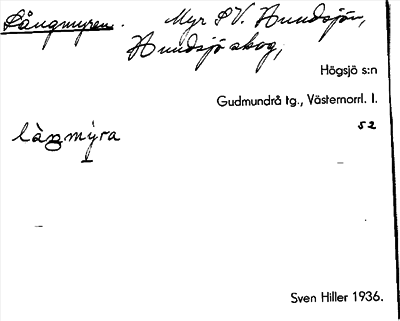 Långmyren. Myr SV. Hundsjön,
Hundsjö skog,
Högsjö s:n
Gudmundrå tg., Västernorrl. l.
52
làŋmy̱ra
Sven Hiller 1936.